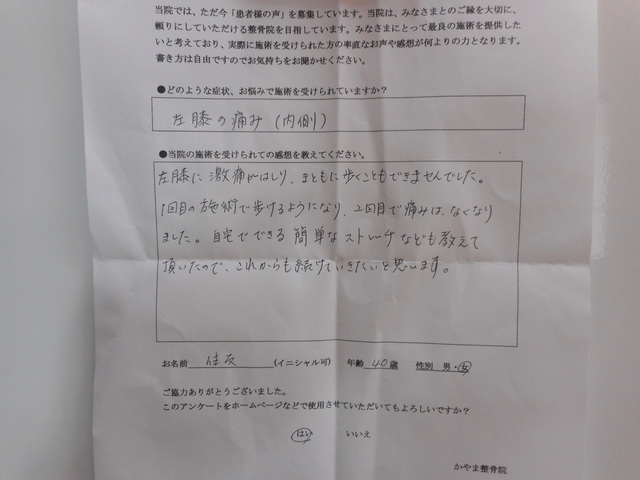 当院では、ただ今「患者様の声」を募集しています。当院は、みなさまとのご縁を大切に、
頼りにしていただける整骨院を目指しています。みなさまにとって最良の施術を提供した
いと考えており、実際に施術を受けられた方の率直なお声や感想が何よりの力となります。
書き方は自由ですのでお気持ちをお聞かせください。
●どのような症状、お悩みで施術を受けられていますか？
左膝の痛み（内側）
●当院の施術を受けられての感想を教えてください。
左膝に激痛がはしり、まともに歩くこともできませんでした。
1回目の施術で歩けるようになり、2回目で痛みは、なくなり
ました。自宅でできる簡単なストレッチなども教えて
頂いたので、これからも続けていきたいと思います。
お名前 住友 （イニシャル可） 年齢 40歳 性別 男・女
ご協力ありがとうございました。
このアンケートをホームページなどで使用させていただいてもよろしいですか？
はい いいえ
かやま整骨院